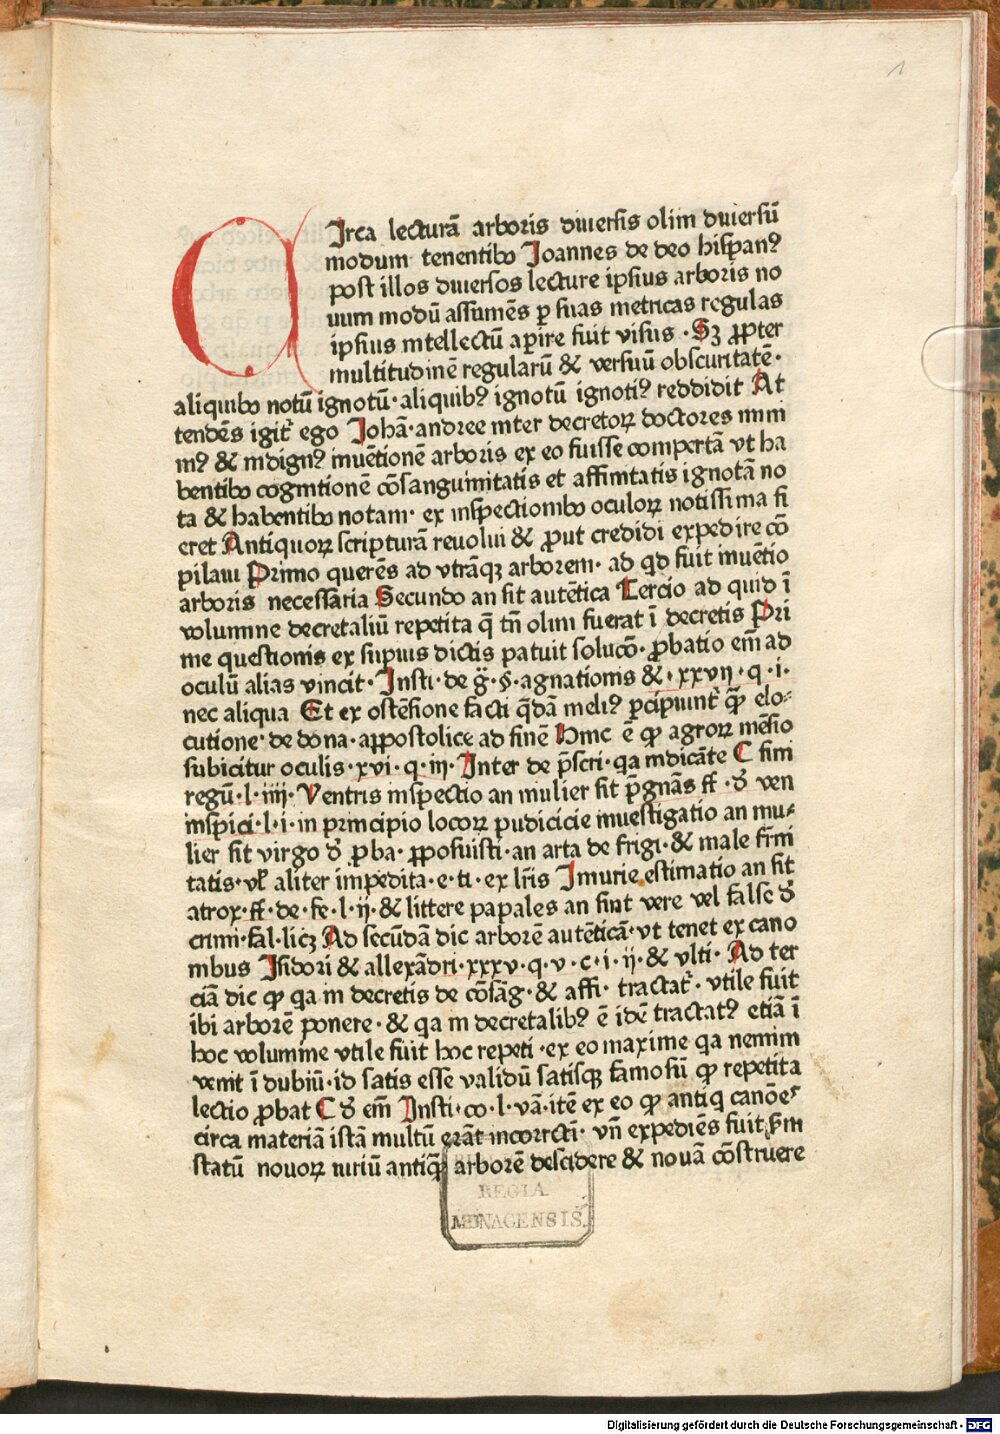 1
CIrca lecturā arboris diuersis olim diuiersū
modum tenentibꝰ Joannes de deo hispanꝰ
post illos diuersos lecture ipsius arboris no
uum modū assumēs ꝑ suas metricas regulas
ipsius intellectū aperire fuit visus · Sꝫ ꝓpter
multitudinē regularū & versuū obscuritatē ·
aliquibꝰ notū ignotū · aliquibꝰ ignotū ignotiꝰ reddidit At
tendēs igit᷑ ego Johā · andree inter decretoꝝ doctores mini
mꝰ & indignꝰ inuētionē arboris ex eo fuisse compertā vt ha
bentibꝰ cognitionē cōsanguinitatis et affinitatis ignotā no
ta & habentibꝰ notam · ex inspectionibꝰ oculoꝝ notissima fi
eret Antiquoꝝ scripturā reuolui & ꝓut credidi expedire cō
pilaui Primo querēs ad vtrāqꝫ arborem · ad qd fuit inuētio
arboris necessaria Secundo an sit autētica Tercio ad quid ī
volumine decretaliū repetita q̄ tn̄ olim fuerat ī decretis Pri
me questionis ex supius dictis patuit solucō · ꝓbatio em̄ ad
oculū alias vincit · Insti · de g̈ · § · agnationis & · xxvij · q · i ·
nec aliqua Et ex ostēsione facti q̄dā meliꝰ ꝑcipiunt᷑ qꝫ elo⸗
cutione · de dona · appostolice ad finē Hinc ē ꝙ agroꝝ mēsio
subicitur oculis · xvi · q · iij · Inter de p̄scri · qa indicāte C fini
regū · l · iiij · Ventris inspectio an mulier sit p̄gnās ff · đ ven
inspici · l · i · in principio locoꝝ pudicicie inuestigatio an mu⸗
lier sit virgo đ ꝓba · ꝓposuisti · an arta de frigi · & male firmi
tatis · vł aliter impedita · e · ti · ex lr̄is Iniurie estimatio an sit
atrox · ff · de · fe · l · ij · & littere papales an sint vere vel false đ
crimi · fal · licꝫ Ad secūdā dic arborē autēticā · vt tenet ex cano
nibus Isidori & allexādri · xxxv · q · v · c · i · ij · & vlti · Ad ter
ciā dic ꝙ qa in decretis de cōsāg · & affi · tractat᷑ · vtile fuit
ibi arborē ponere · & qa in decretalibꝰ ē idē tractatꝰ etiā ī
hoc volumine vtile fuit hoc repeti · ex eo maxime qa nemini
venit ī dubiū · id satis esse validū satisqꝫ famosū ꝙ repetita
lectio ꝓbat C đ em̄ Insti · co · l · vā · itē ex eo ꝙ antiq canōes
circa materiā istā multū erāt incorrcti · vn̄ expediēs fuit ꝑm
statū nouoꝝ iuriū antiq̄ arborē descidere & nouā cōstruere
REGIA
MONACENSIS.
Digitalisierung gefördert durch die Deutsche Forschungsgemeinschaft · DFG